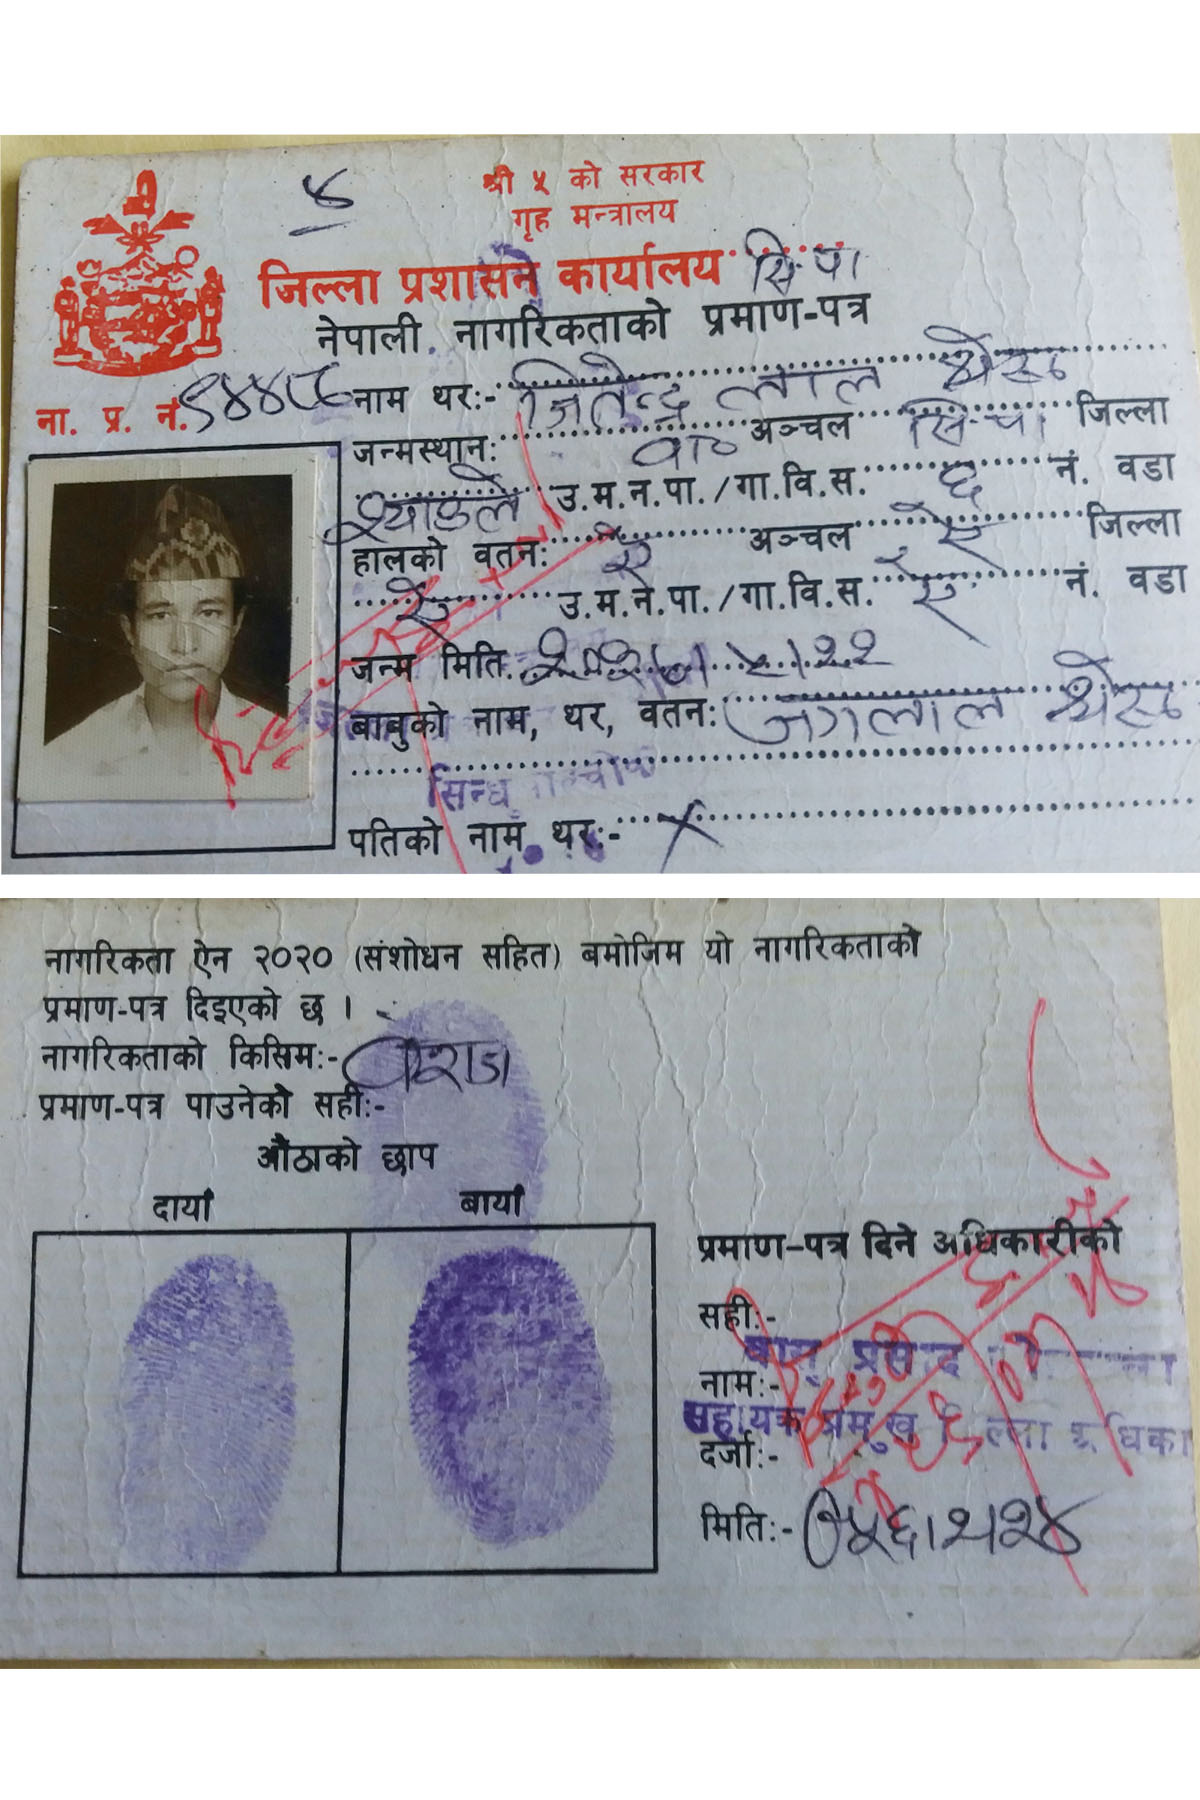 ४
श्री ५ को सरकार
गृह मन्त्रालय
जिल्ला प्रशासन कार्यालय सि.पा
नेपाली नागरिकताको प्रमाण-पत्र
ना. प्र. नं. नाम थरः- जितेन्द्र लाल श्रेष्ठ
जन्मस्थानः वा० अञ्चल सि.पा जिल्ला
उ.म.न.पा./गा.वि.स. ६ नं. वडा
हालको वतनः ऐ अञ्चल ऐ जिल्ला
ऐ उ.म.न.पा./गा.वि.स. ऐ नं. वडा
जन्म मिति.
बाबुको नाम, थर, वतनः जगलाल श्रेष्ठ
पतिको नाम, थरः- X
नागरिकता ऐन २०२० (संशोधन सहित) बमोजिम यो नागरिकताको
प्रमाण-पत्र दिइएको छ ।
नागरिकताको किसिमः- वंशज
प्रमाण-पत्र पाउनेको सहीः-
औंठाको छाप
दायाँ बायाँ
प्रमाण-पत्र दिने अधिकारीको
सहीः-
नामः-
सहायक प्रमुख जिल्ला अधिका
दर्जाः-
मितिः-